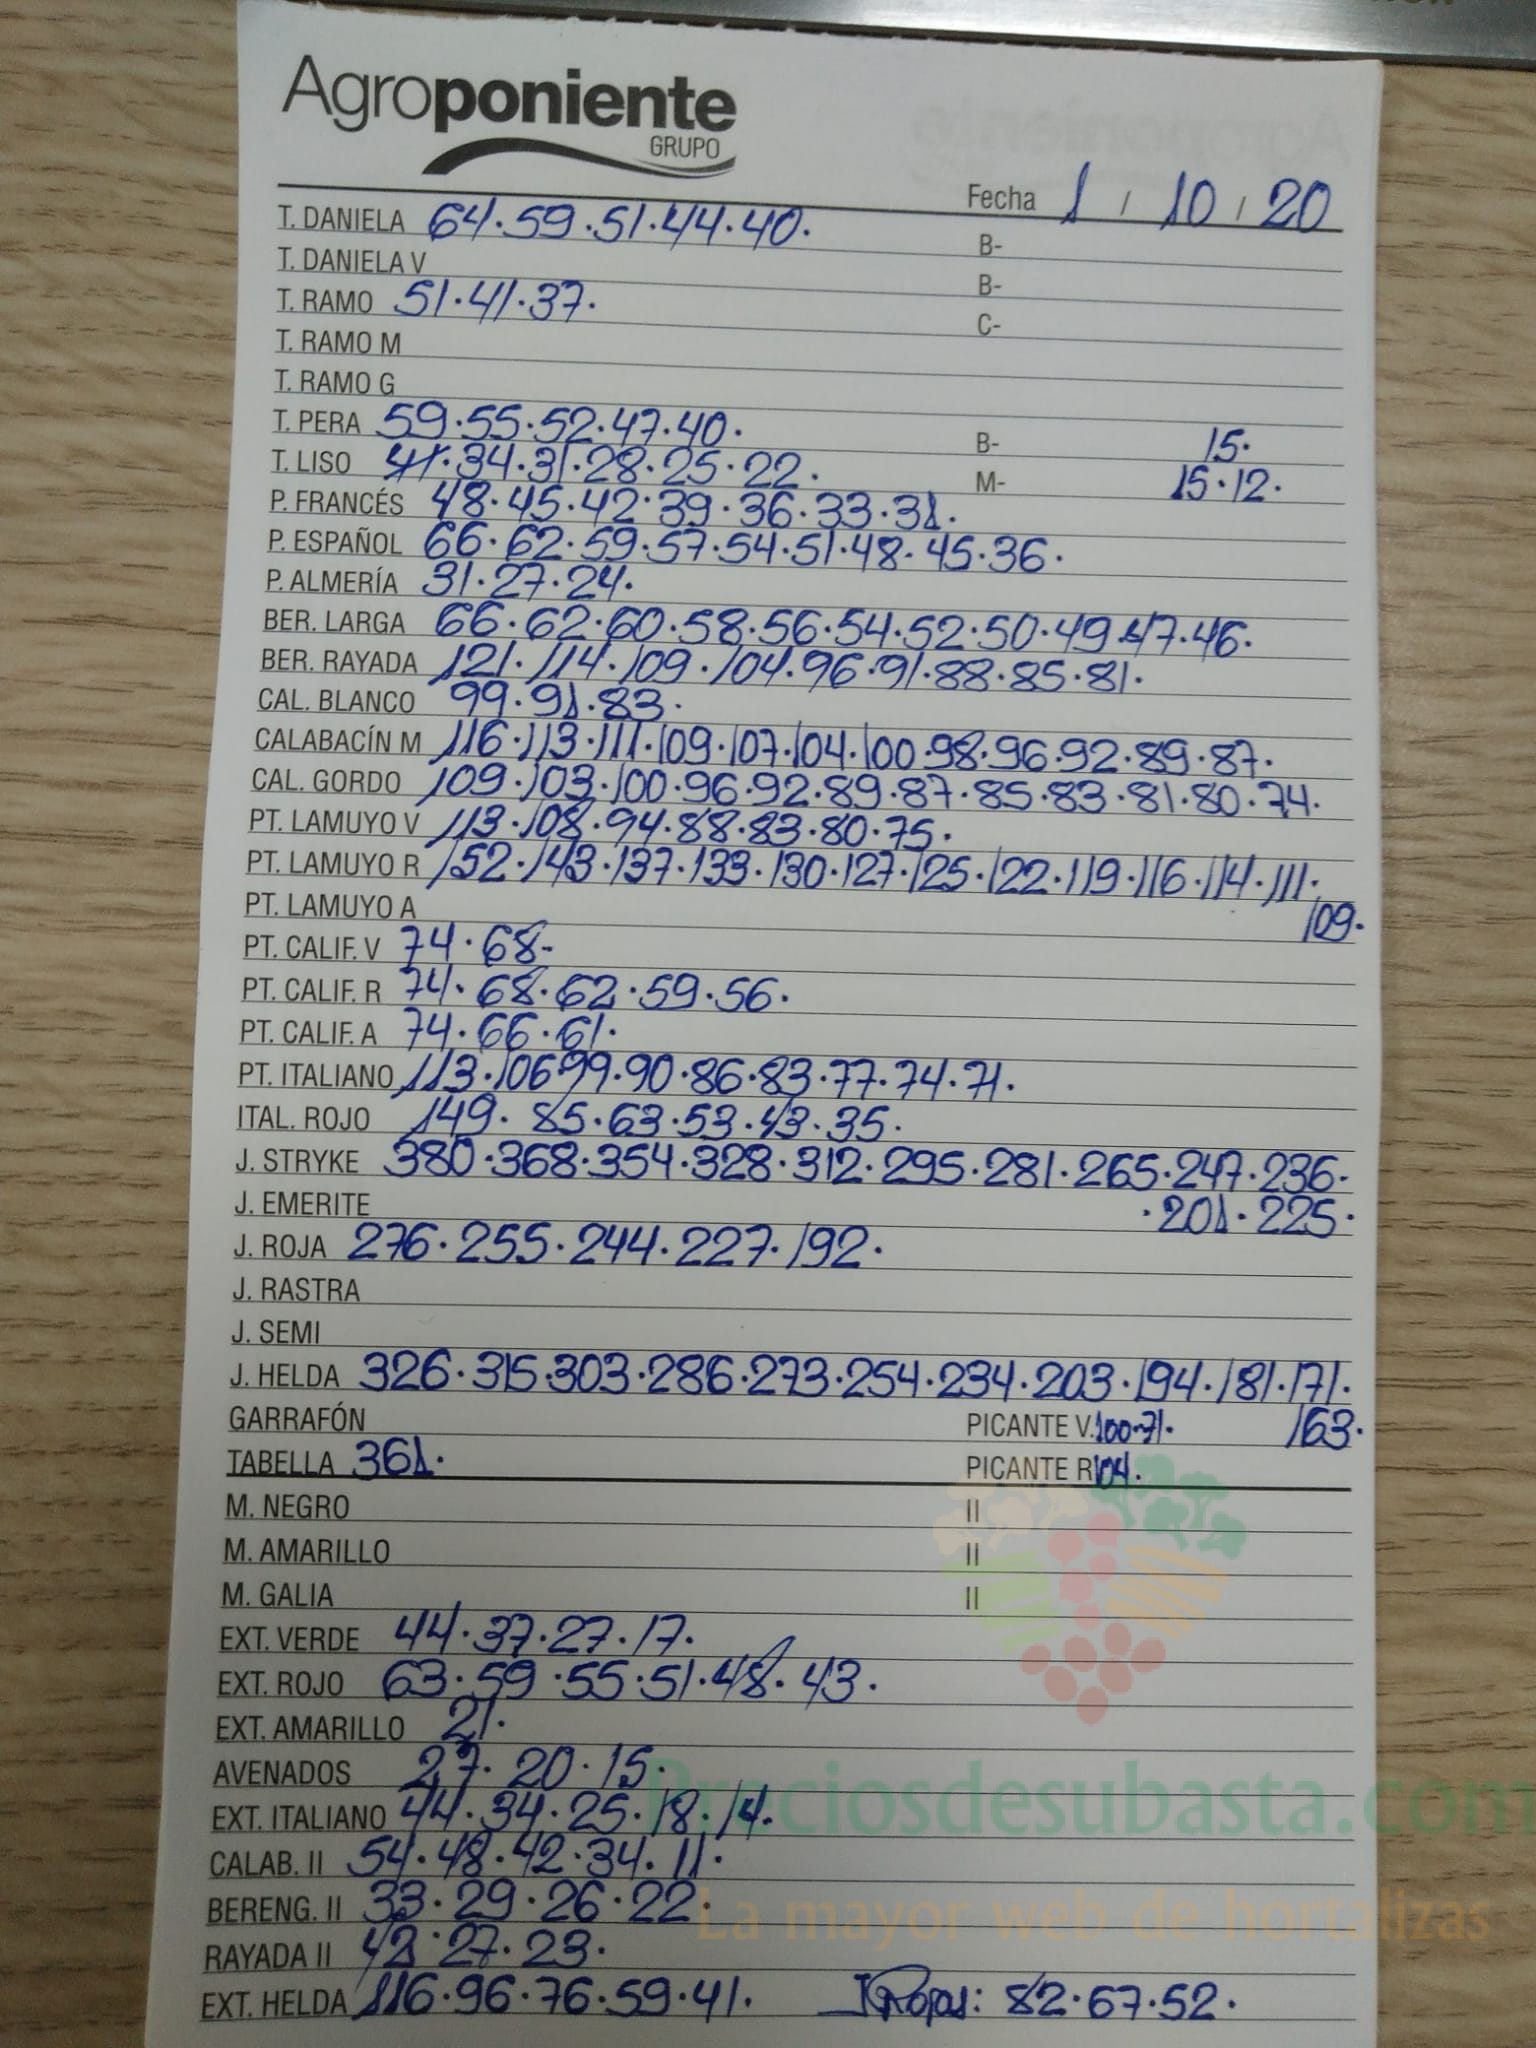 Agroponiente
GRUPO
Fecha 1 / 10 / 20
T. DANIELA 64.59.51.44.40. B-
T. DANIELA V B-
T. RAMO 51.41.37. C-
T. RAMO M
T. RAMO G
T. PERA 59.55.52.47.40. B- 15.
T. LISO 41.34.31.28.25.22. M- 15.12.
P. FRANCÉS 48.45.42.39.36.33.31.
P. ESPAÑOL 66.62.59.57.54.51.48.45.36.
P. ALMERÍA 31.27.24.
BER. LARGA 66.62.60.58.56.54.52.50.49.47.46.
BER. RAYADA 121.114.109.104.96.91.88.85.81.
CAL. BLANCO 99.91.83.
CALABACÍN M 116.113.111.109.107.104.100.98.96.92.89.87.
CAL. GORDO 109.103.100.96.92.89.87.85.83.81.80.74.
PT. LAMUYO V 113.108.94.88.83.80.75.
PT. LAMUYO R 152.143.137.133.130.127.125.122.119.116.114.111.
PT. LAMUYO A 109.
PT. CALIF. V 74.68-
PT. CALIF. R 74.68.62.59.56.
PT. CALIF. A 74.66.61.
PT. ITALIANO 113.106.99.90.86.83.77.74.71.
ITAL. ROJO 149. 85.63.53.43.35.
J. STRYKE 380.368.354.328.312.295.281.265.247.236-
J. EMERITE .201.225.
J. ROJA 276.255.244.227.192.
J. RASTRA
J. SEMI
J. HELDA 326.315.303.286.273.254.234.203.194.181.171.
GARRAFÓN PICANTE V. 100.71. 163.
TABELLA 361. PICANTE R 104.
M. NEGRO II
M. AMARILLO II
M. GALIA II
EXT. VERDE 44.37.27.17.
EXT. ROJO 63.59.55.51.48.43.
EXT. AMARILLO 21.
AVENADOS 27.20.15.
Preciosdesubasta.com
EXT. ITALIANO 44.34.25.18.14.
CALAB. II 54.48.42.34.11.
BERENG. II 33.29.26.22.
La mayor web de hortalizas
RAYADA II 42.27.23.
EXT. HELDA 116.96.76.59.41. Rojas: 82.67.52.